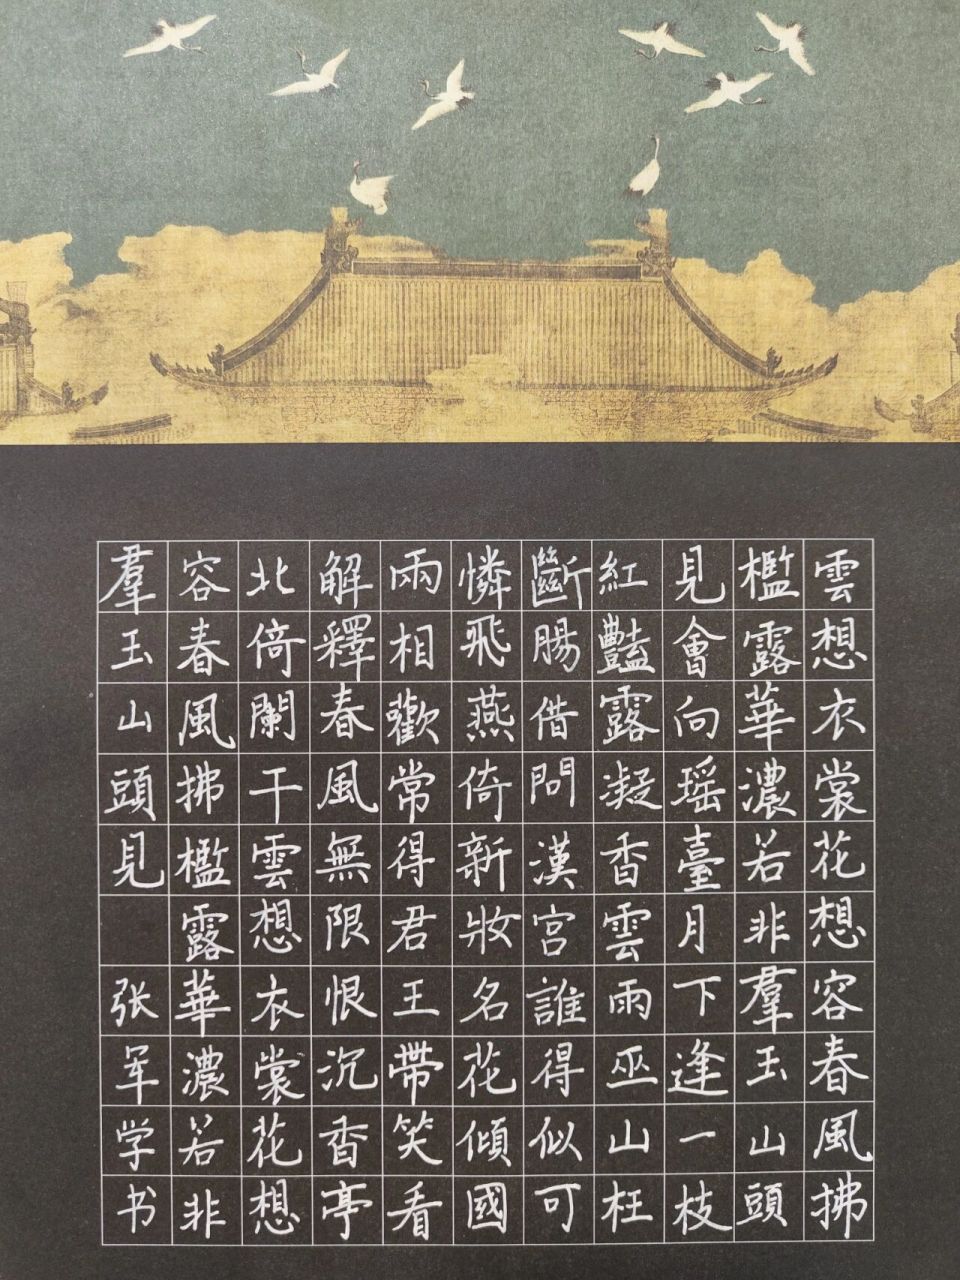 雲想衣裳花想容春風拂
檻露華濃若非羣玉山頭
見會向瑶臺月下逢一枝
紅豔露凝香雲雨巫山枉
斷腸借問漢宮誰得似可
憐飛燕倚新妝名花傾國
兩相歡常得君王帶笑看
解釋春風無限恨沉香亭
北倚闌干雲想衣裳花想
容春風拂檻露華濃若非
羣玉山頭見 张军学书